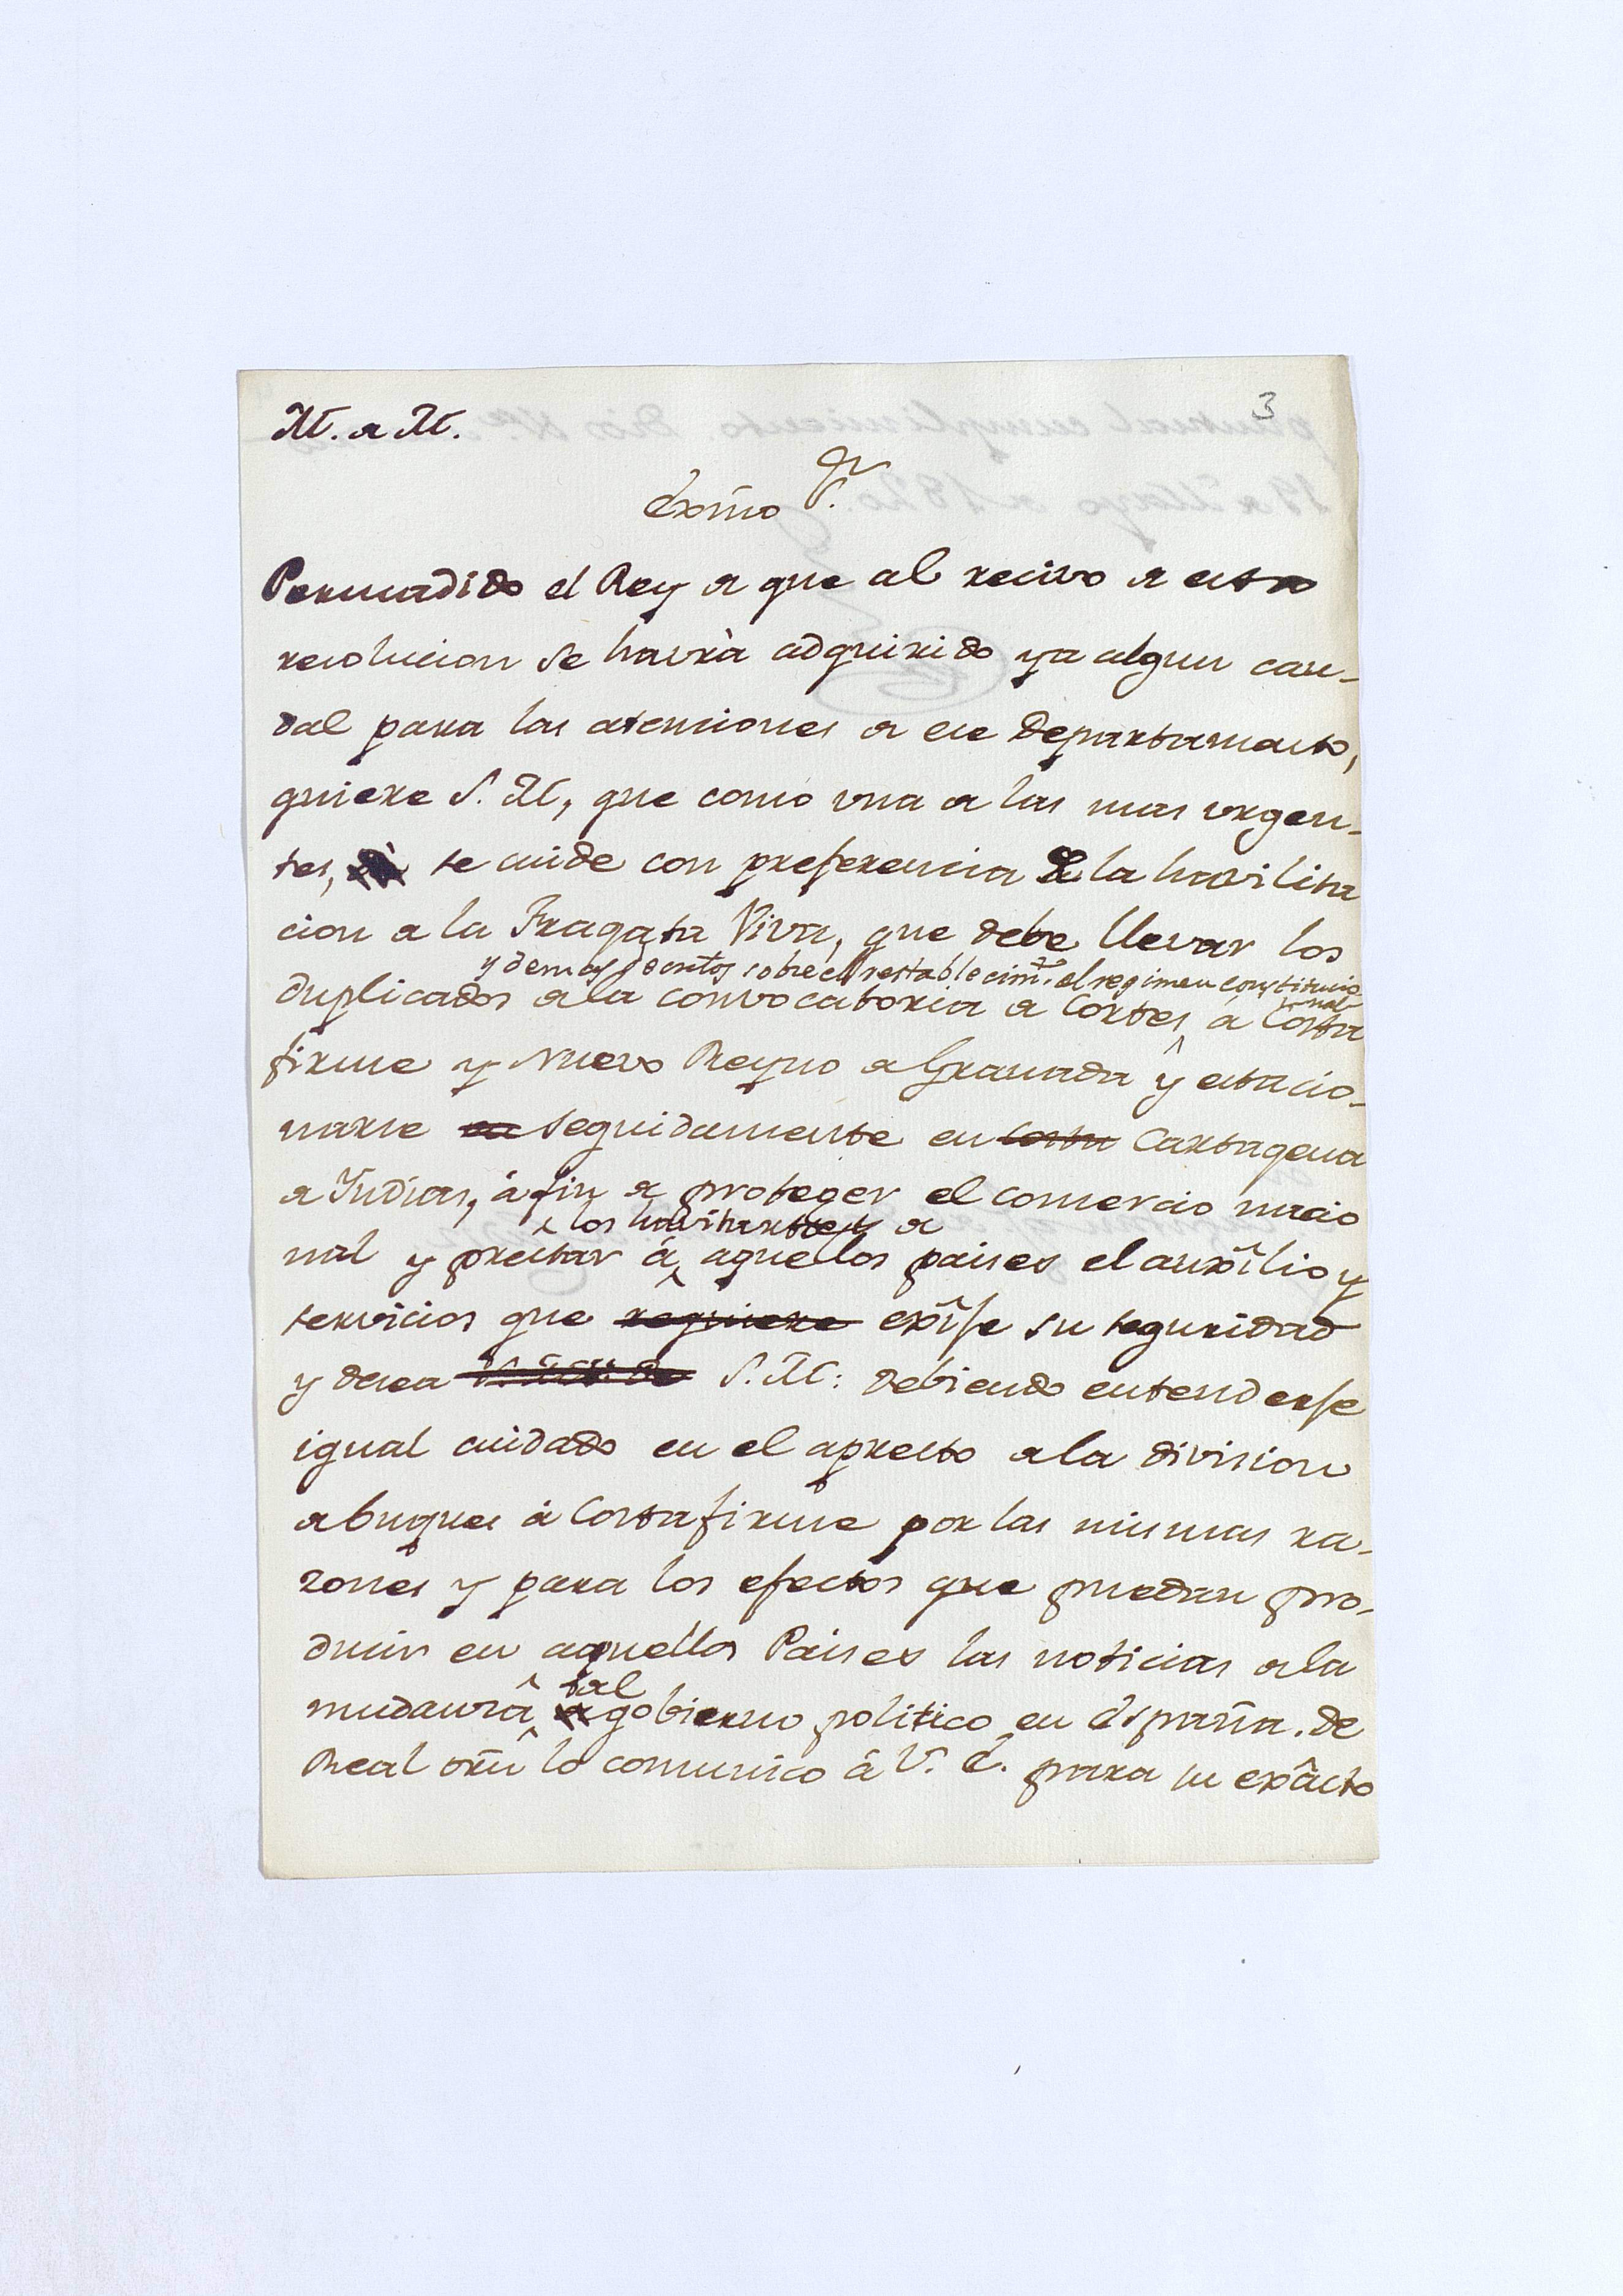 M. a M.
3
Exmo Sr.
Persuadido el Rey a que al recivo a esta
resolucion se havrà adquirido ya algun cau-
dal para las atenciones a ese Departamento,
quiere S. M, que como una a las mas urgen-
tes, se cuide con preferencia a la havilita
cion a la Fragata Viva, que debe llevar los
y demas decretos sobre el restablecimto. el regimen constitucio
nal
duplicados a la convocatoria a Cortes á Costa
firme y Nuevo Reyno a Granada y estacio-
narse en seguidamente en Costa Cartagena
a Yndias, á fin a proteger el comercio nacio
los havitantes a
nal y prestar á aquellos paises el auxîlio y
servicios que requiere exîje su seguridad
y desea S. M: debiendo entenderse
igual cuidado en el apresto a la division
a buques á Costafirme por las mismas ra-
zones y para los efectos que puedan pro-
ducir en aquellos Paises las noticias a la
tal
mudanza a gobierno politico en España. De
Real orn lo comunico á V. E. para su exâcto